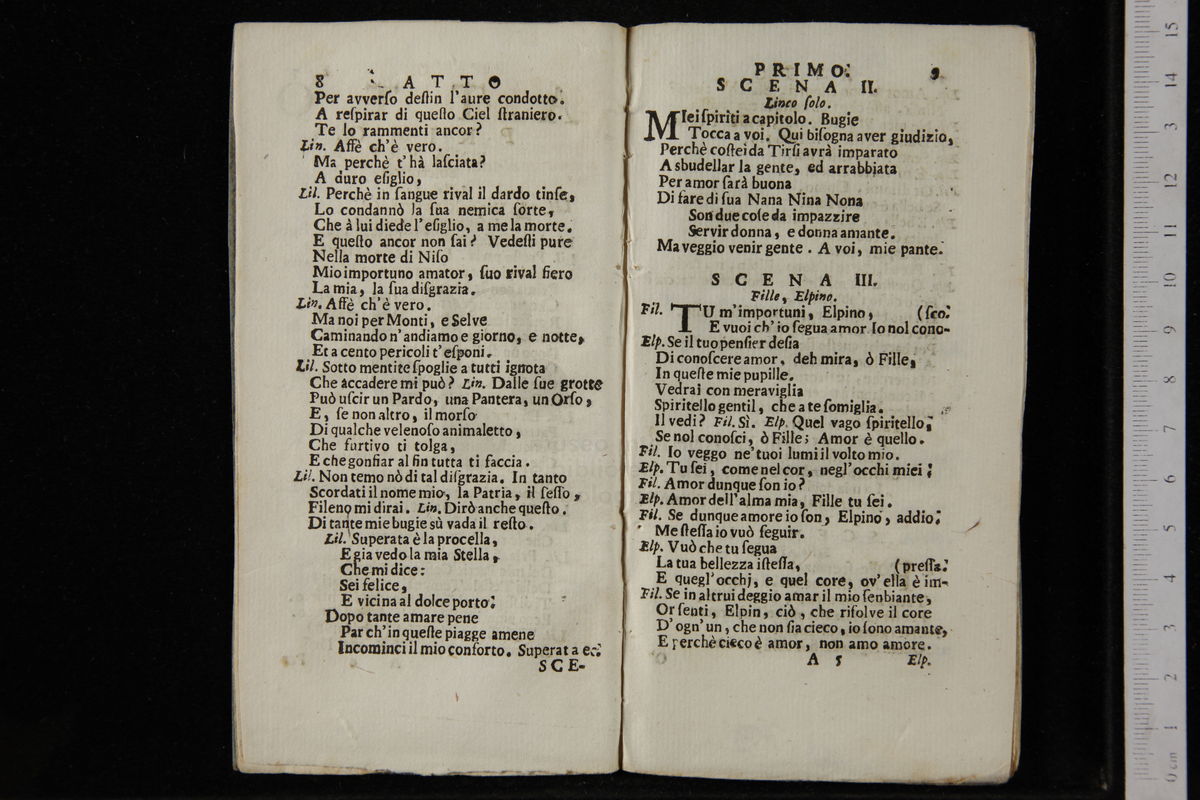 8 ATTO
Per avverſo deſtin l'aure condotto.
A reſpirar di queſto Ciel ſtraniero.
Te lo rammenti ancor?
Lin. Affè ch'è vero.
Ma perchè t'hà laſciata?
A duro eſiglio,
Lil. Perchè in ſangue rival il dardo tinſe,
Lo condannò la ſua nemica ſorte,
Che à lui diede l'eſiglio, a me la morte.
E queſto ancor non ſai? Vedeſti pure
Nella morte di Niſo
Mio importuno amator, ſuo rival fiero
La mia, la ſua diſgrazia.
Lin. Affè ch'è vero.
Ma noi per Monti, e Selve
Caminando n'andiamo e giorno, e notte,
Et a cento pericoli t'eſponi.
Lil. Sotto mentite ſpoglie a tutti ignota
Che accadere mi può? Lin. Dalle ſue grotte
Può uſcir un Pardo, una Pantera, un Orſo,
E, ſe non altro, il morſo
Di qualche velenoſo animaletto,
Che furtivo ti tolga,
E che gonfiar al fin tutta ti faccia.
Lil. Non temo nò di tal diſgrazia. In tanto
Scordati il nome mio, la Patria, il ſeſſo,
Fileno mi dirai. Lin. Dirò anche queſto.
Di tante mie bugie sù vada il reſto.
Lil. Superata è la procella,
E gia vedo la mia Stella,
Che mi dice:
Sei felice,
E vicina al dolce porto.
Dopo tante amare pene
Par ch'in queſte piagge amene
Incominci il mio conforto. Superata ec.
SCE-
PRIMO. 9
SCENA II.
Linco ſolo.
MIei ſpiriti a capitolo. Bugie
Tocca a voi. Qui biſogna aver giudizio,
Perchè coſtei da Tirſi avrà imparato
A sbudellar la gente, ed arrabbiata
Per amor ſarà buona
Di fare di ſua Nana Nina Nona
Son due coſe da impazzire
Servir donna, e donna amante.
Ma veggio venir gente. A voi, mie pante.
SCENA III.
Fille, Elpino.
Fil. TU m'importuni, Elpino, (ſco.
E vuoi ch'io ſegua amor Io nol cono-
Elp. Se il tuo penſier deſia
Di conoſcere amor, deh mira, ò Fille,
In queſte mie pupille.
Vedrai con meraviglia
Spiritello gentil, che a te ſomiglia.
Il vedi? Fil. Sì. Elp. Quel vago ſpiritello,
Se nol conoſci, ò Fille; Amor è quello.
Fil. Io veggo ne' tuoi lumi il volto mio.
Elp. Tu ſei, come nel cor, negl'occhi miei.
Fil. Amor dunque ſon io?
Elp. Amor dell'alma mia, Fille tu ſei.
Fil. Se dunque amore io ſon, Elpino, addio.
Me ſteſſa io vuò ſeguir.
Elp. Vuò che tu ſegua
La tua bellezza iſteſſa, (preſſa.
E quegl'occhj, e quel core, ov'ella è im-
Fil. Se in altrui deggio amar il mio ſenbiante,
Or ſenti, Elpin, ciò, che riſolve il core
D'ogn'un, che non ſia cieco, io ſono amante,
E perchè cieco è amor, non amo amore.
A 5 Elp.